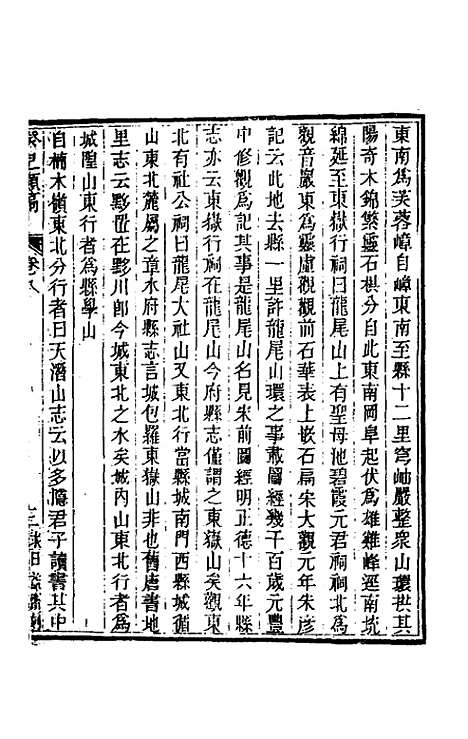 東南爲芙蓉嶂自嶂東南至縣十二里穹岫嚴整衆山環拱其
陽奇木錦繁靈石棋分自此東南岡阜起伏爲雄雞峰逕南垸
綿延至東嶽行祠曰龍尾山上有聖母池碧霞元君祠祠北爲
觀音巖東爲靈虛觀觀前石華表上嵌石扁宋大觀元年朱彥
記云此地去縣一里許龍尾山環之事載圖經幾千百歲元豐
中修觀爲記其事是龍尾山名見朱前圖經明正德十六年縣
志亦云東嶽行祠在龍尾山今府縣志僅謂之東嶽山矣觀東
北有社公祠曰龍尾大社山又東北行當縣城南門西縣城循
山東北麓屬之章水府縣志言城包羅東嶽山非也舊唐書地
里志云黟置在黟川郎今城東北之水矣城內山東北行者爲
城隍山東行者爲縣學山
自楠木嶺東北分行者曰天潛山志云以多隱君子讀書其中
癸巳類稿
卷八